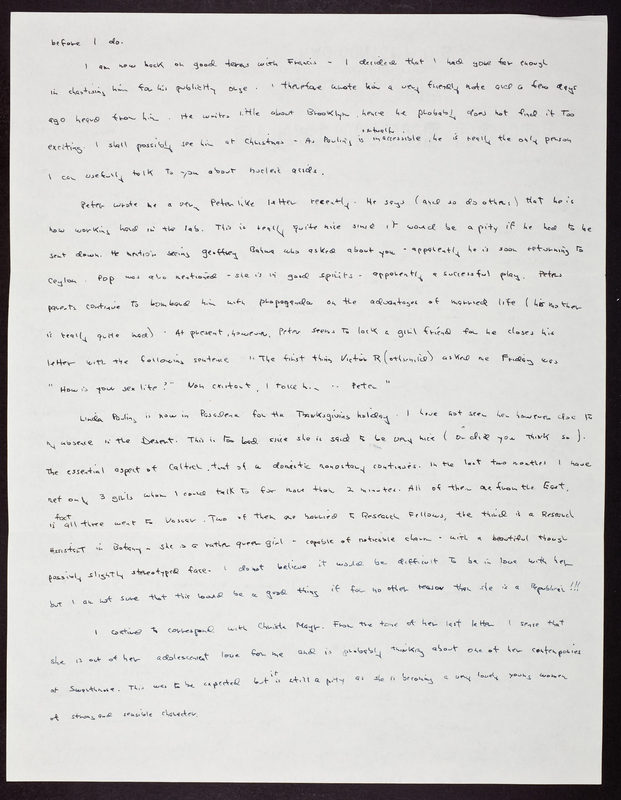 before I do.
I am now back on good terms with Francis - I decided that I had gone far enough
in chastising him for his publicity urge. I therefore wrote him a very friendly note and a few days
ago heard from him. He writes little about Brooklyn hence he probably does not find it too
exciting. I shall possibly see him at Christmas - As Pauling is virtually inaccessible, he is really the only person
I can usefully talk to you about nucleic acids.
Peter wrote me a very Peter like letter recently. He says (and so do others) that he is
now working hard in the lab. This is really quite nice since it would be a pity if he had to be
sent down. He mention seeing geoffrey who asked about you - apparently he is soon returning to
Ceylon. Pop was also mentioned - she is in good spirits - apparently a successful play. Peters
parents continue to bombard him with propaganda on the advantages of married life (his mother
is really quite mad). At present, however, Peter seems to lack a girl friend for he closes his
letter with the following sentence "The first thing Victor R (othschild) asked me Friday was
"How is your sex life?" Non existant, I told him .. Peter"
Linda Pauling is now in Pasadena for the Thanksgiving holiday. I have not seen her however due to
my absence in the Desert. This is too bad since she is said to be very nice (or did you think so).
The essential aspect of Caltech, that of a domestic monastary continues. In the last two months I have
met only 3 girls whom I could talk to for more than 2 minutes. All of them are from the East,
in fact all three went to Vassar. Two of them are married to Research Fellows, the third is a Research
Assistant in Botany - she is a rather queer girl - capable of noticable charm - with a beautiful though
possibly slightly stereotyped face. I do not believe it would be difficult to be in love with her
but I am not sure that this would be a good thing if for no other reason than she is a Republican!!!
I continue to correspond with Christa Mayr. From the tone of her last letter I sense that
she is out of her adolescent love for me and is probably thinking about one of her contemporaries
at Swarthmore. This was to be expected but it is still a pity as she is becoming a very lovely young women
of strong and sensible character.